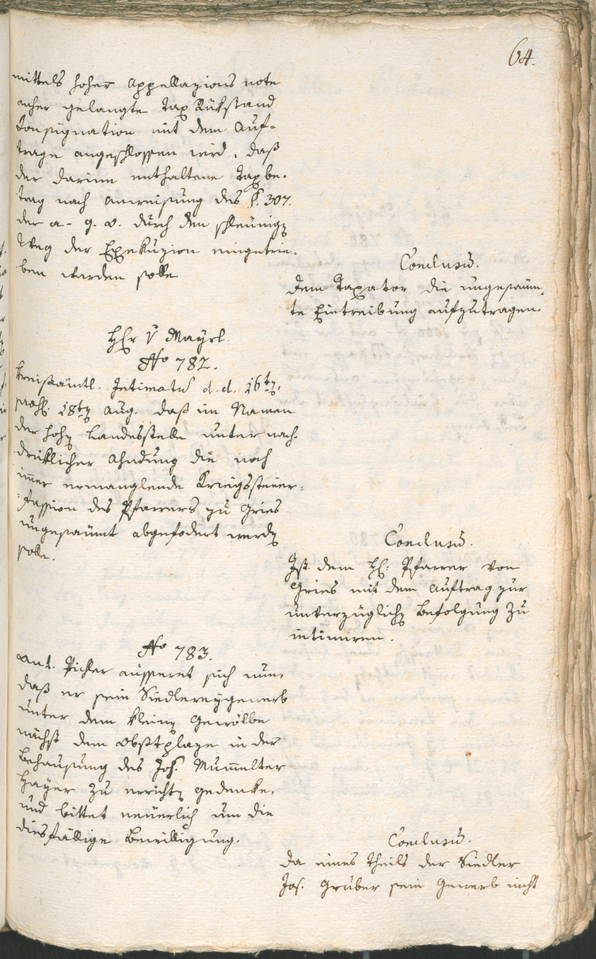 64.
mittels hoher Appellazions note
anher gelangte Tax Rükstand
Consignation mit dem Auf-
trage angeschlossen wird, daß
der darinn enthaltene Taxbe-
trag nach Anweisung des §. 307.
der a. g. o. durch den schleunig
Weg der Exekuzion eingetrie-
ben werden solle
Conclusu.
dem Taxator die ungesäum-
te Eintreibung aufzutragen.
HEr v Mayrl
No 782.
Kreisämtl. Intimat d. d. 16t
18t Aug. daß im Namen
der hoh Landesstelle unter nach-
drüklicher Ahndung die noch
immer ermanglende Kriegssteuer-
Fassion des Pfarrers zu Gries
ungesäumt abgefodert werd
solle.
Conclusu.
Ist dem H: Pfarrer von
Gries mit dem Auftrag zur
unverzüglich Befolgung zu
intimiren.
No 783.
Ant. Pichler äusseret sich nun,
daß er sein Siedlereygewerb
unter dem klein Gewölbe
nächst dem Obstplaze in der
Behausung des Jos. Mumelter
Hayer zu erricht gedenke,
und bittet neuerlich um die
diesfällige Bewilligung.
Conclusu.
Da eines Theils der Siedler
Jos. Gruber sein Gewerb nicht